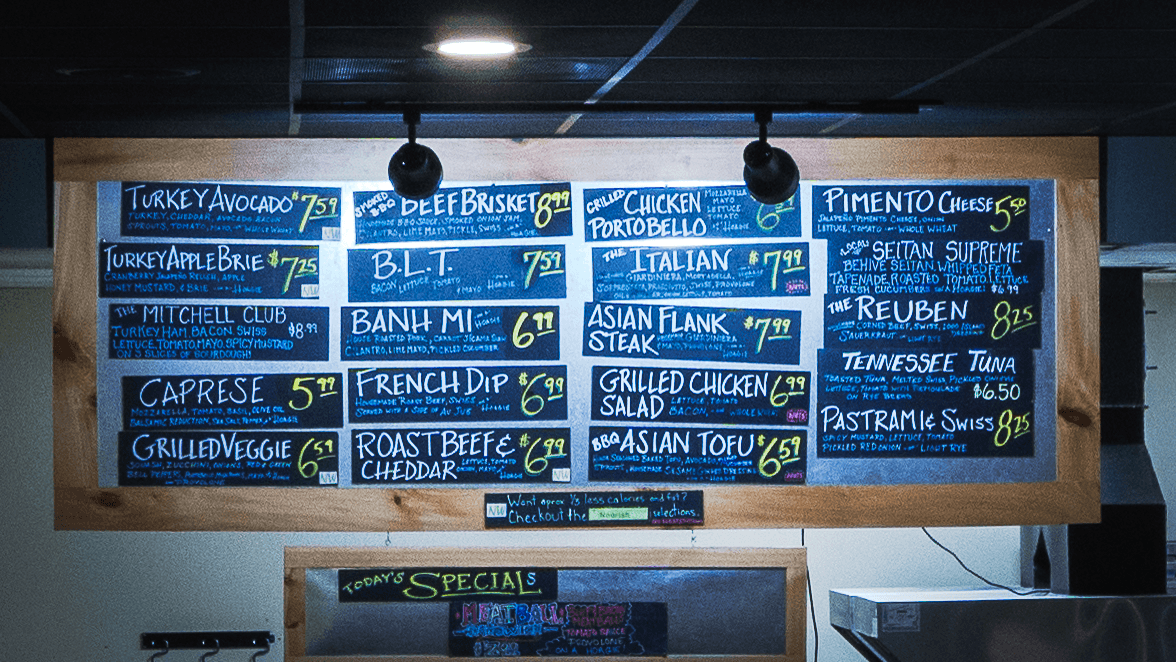 TURKEY AVOCADO $7.59
TURKEY, CHEDDAR, AVOCADO, BACON
SPROUTS, TOMATO, MAYO, WHOLE WHEAT
NW
TURKEY APPLE BRIE $7.25
CRANBERRY JALAPEÑO RELISH, APPLE
HONEY MUSTARD, & BRIE
NW
THE MITCHELL CLUB
TURKEY HAM BACON SWISS $8.99
LETTUCE, TOMATO, MAYO, SPICY MUSTARD
ON 3 SLICES OF SOURDOUGH!
CAPRESE 5.99
MOZZARELLA, TOMATO, BASIL, OLIVE OIL
BALSAMIC REDUCTION, HOAGIE
GRILLED VEGGIE 6.59
SQUASH, ZUCCHINI, ONIONS, RED & GREEN
BELL PEPPERS
NW
SMOKED BBQ BEEF BRISKET 8.99
BBQ SAUCE, SMOKED ONION JAM,
CILANTRO, LIME MAYO, PICKLE, SWISS HOAGIE
B.L.T. 7.59
BACON LETTUCE TOMATO & MAYO HOAGIE
BANH MI ON A HOAGIE 6.99
HOUSE ROASTED PORK, CARROT JICAMA SLAW
CILANTRO, LIME MAYO, PICKLED CUCUMBER
FRENCH DIP $6.99
HOMEMADE ROAST BEEF, SWISS
SERVED WITH A SIDE OF AU JUS HOAGIE
ROAST BEEF & $6.99
CHEDDAR LETTUCE, TOMATO
ONION, MAYO HOAGIE
NW
GRILLED CHICKEN
PORTOBELLO
MOZZARELLA
MAYO
LETTUCE
TOMATO
HOAGIE
THE ITALIAN $7.99
GIARDINIERA, MORTADELLA,
SOPRESSATA, PROSCIUTTO, SWISS, PROVOLONE
ONION LETTUCE, TOMATO
ASIAN FLANK $7.99
STEAK
GRILLED CHICKEN 6.99
SALAD LETTUCE, TOMATO
BACON,
NUTS
BBQ ASIAN TOFU $6.59
BAKED TOFU, AVOCADO
SPROUTS, HOMEMADE SESAME GINGER DRESSING
NUTS
PIMENTO CHEESE 5.50
JALAPEÑO PIMENTO CHEESE, ONION
LETTUCE, TOMATO WHOLE WHEAT
LOCAL SEITAN SUPREME
BEHIVE SEITAN, WHIPPED FETA
TAPENADE, ROASTED TOMATO, LETTUCE
FRESH CUCUMBERS W/A HOAGIE! $6.99
THE REUBEN 8.25
CORNED BEEF, SWISS, 1000 ISLAND
SAUERKRAUT LIGHT RYE
TENNESSEE TUNA
TOASTED TUNA, MELTED SWISS, PICKLED ONIONS
LETTUCE, TOMATO WITH REMOULADE
ON RYE BREAD $6.50
PASTRAMI & SWISS 8.25
SPICY MUSTARD, LETTUCE, TOMATO
PICKLED RED ONION LIGHT RYE
NW Want aprox 1/3 less calories and fat?
Checkout the Nourish selections.
TODAY'S SPECIALS
MEATBALL
TOMATO SAUCE
PROVOLONE
ON A HOAGIE!